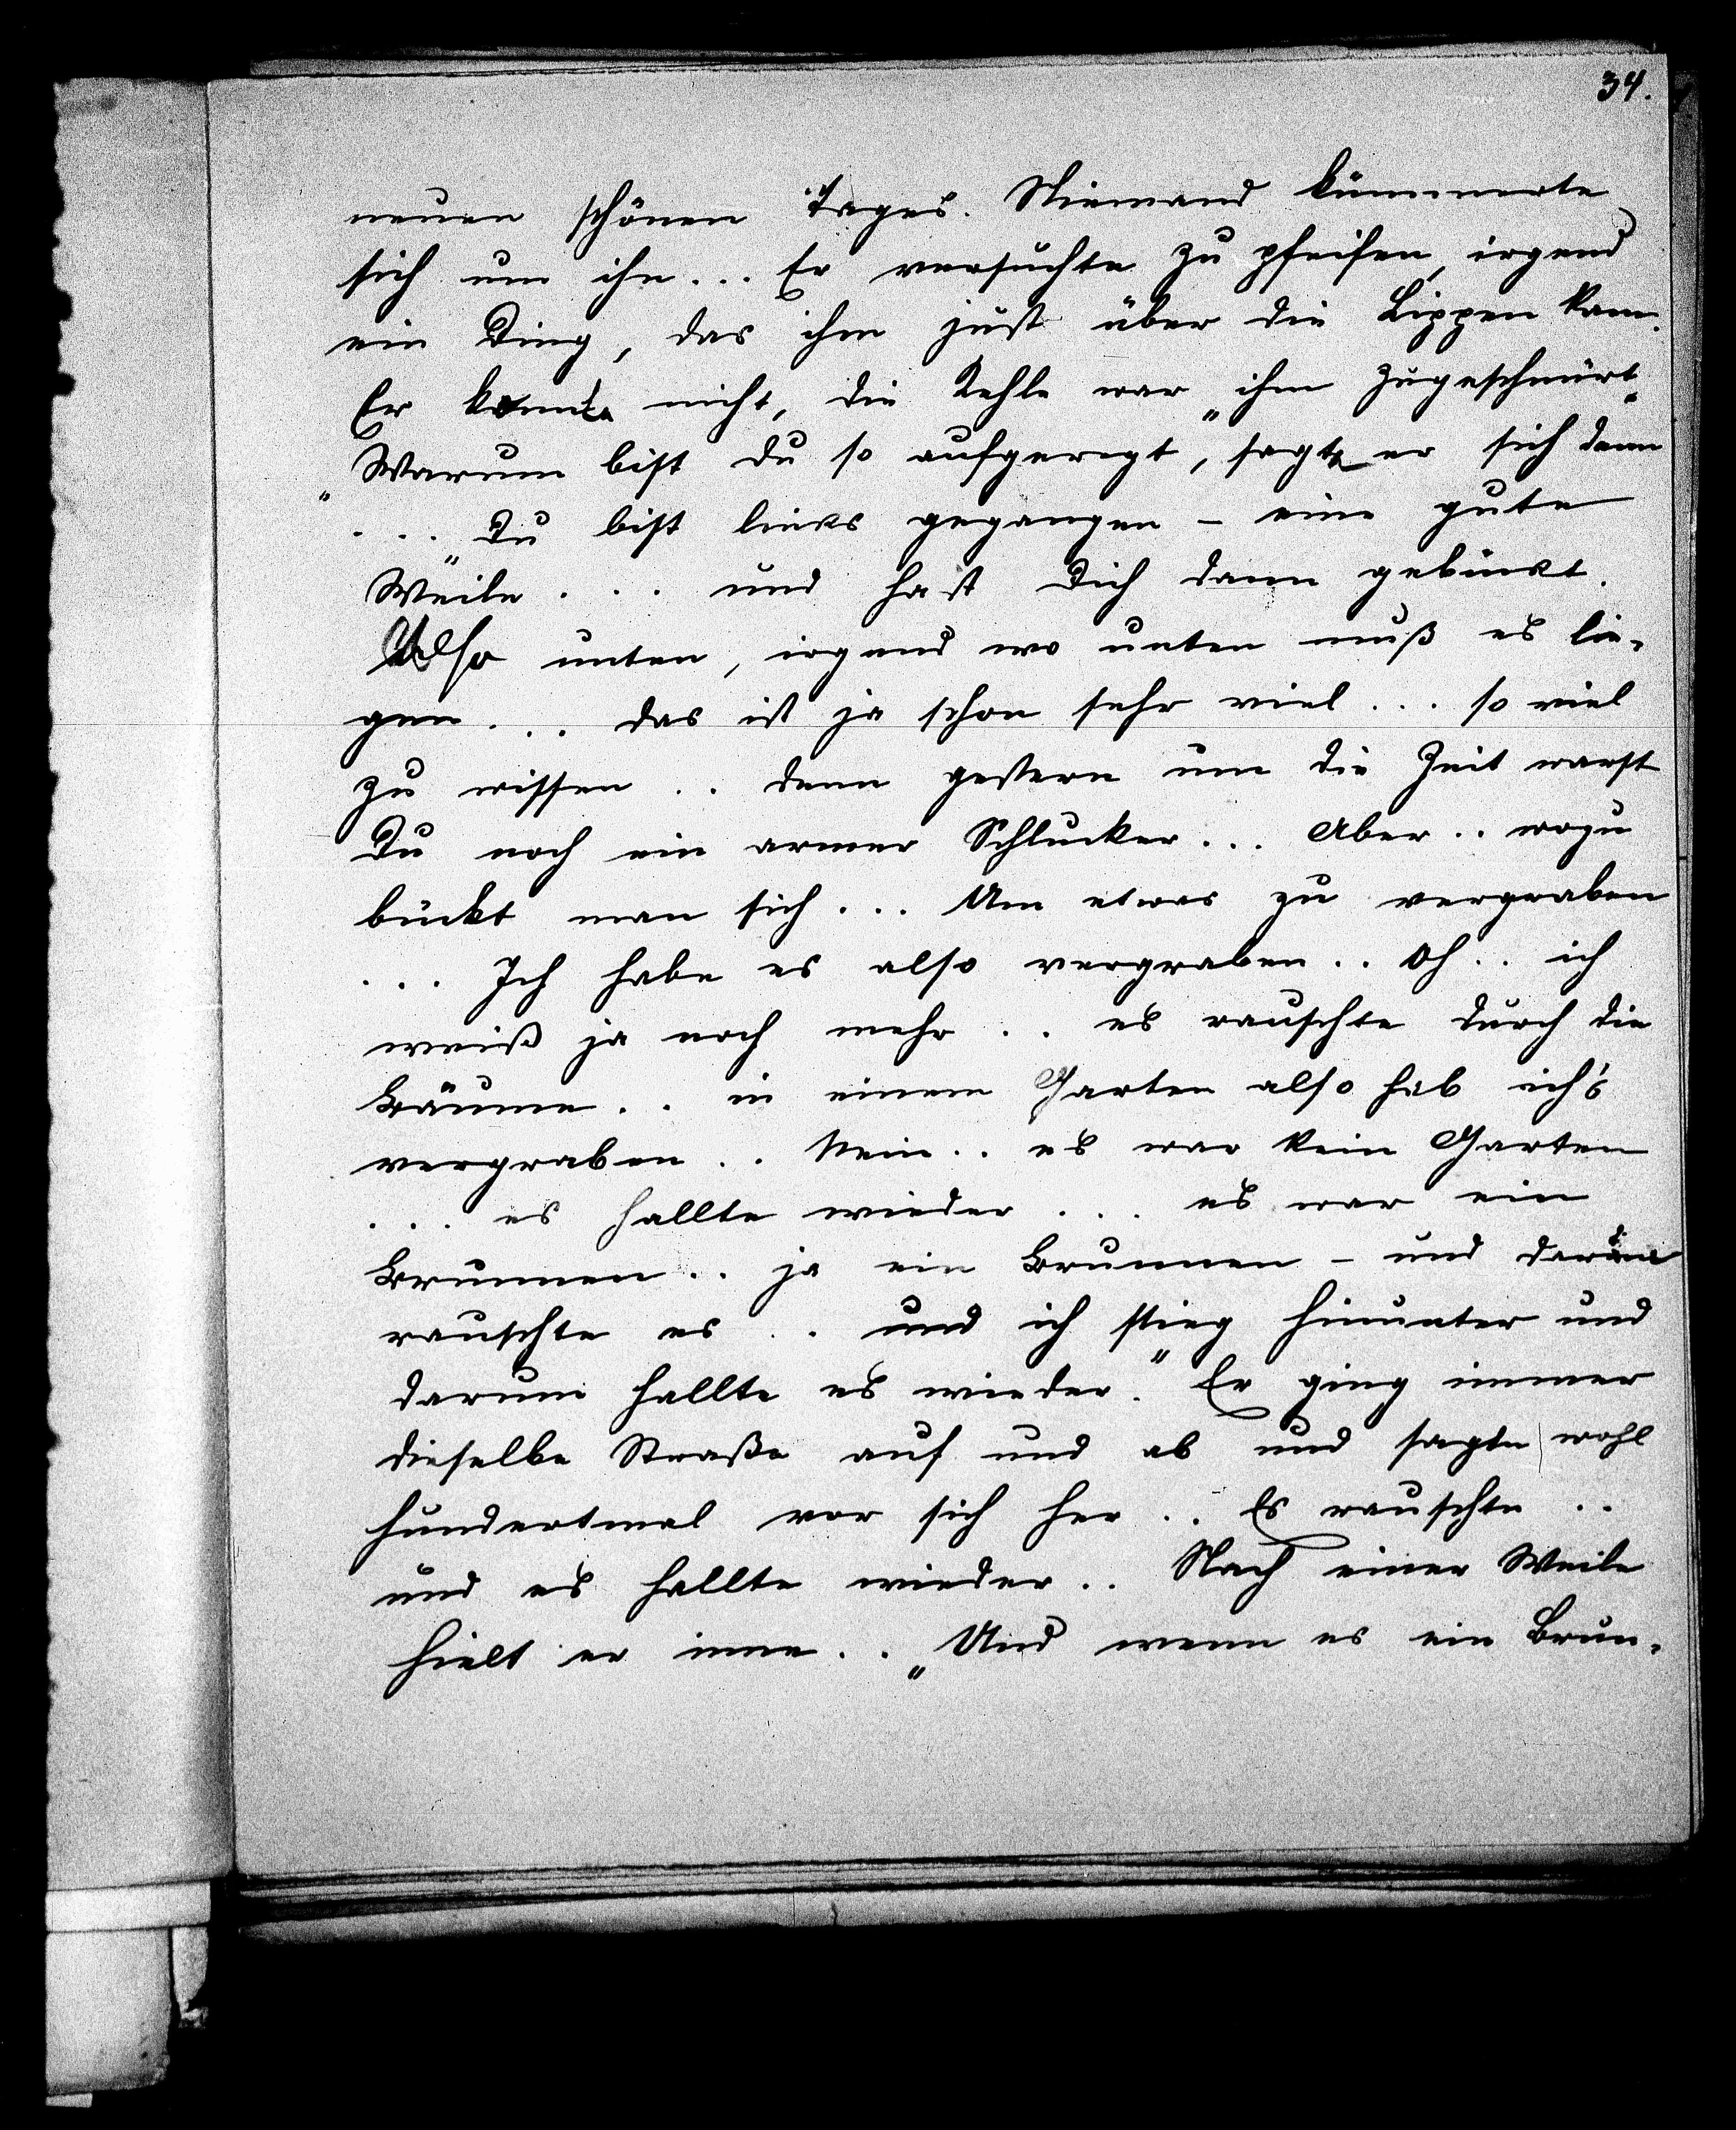 34.
neuen schönen Tages. Niemand kümmerte
sich um ihn... Er versuchte zu pfeifen, irgend
ein Ding, das ihm just über die Lippen kam.
Er konnte nicht, die Kehle war ihm zugeschnürt.
„Warum bist du so aufgeregt", sagte er sich dann
... „Du bist links gegangen – eine gute
Weile ... und hast Dich dann gebückt.
Also unten, irgend wo unten muß es lie-
gen... das ist ja schon sehr viel... so viel
zu wissen .. denn gestern um die Zeit warst
Du noch ein armer Schlucker... Aber.. wozu
bückt man sich... Um etwas zu vergraben
... Ich habe es also vergraben.. Oh.. ich
weiß ja noch mehr .. es rauschte durch die
Bäume.. in einem Garten also hab ich's
vergraben.. Nein.. es war kein Garten
... es hallte wieder ... es war ein
Brunnen.. ja ein Brunnen – und darin
rauschte es .. und ich stieg hinunter und
darum hallte es wieder." Er ging immer
dieselbe Straße auf und ab und sagte wohl
hundertmal vor sich her .. Es rauschte ..
und es hallte wieder.. Nach einer Weile
hielt er inne.. „Und wenn es ein Brun-